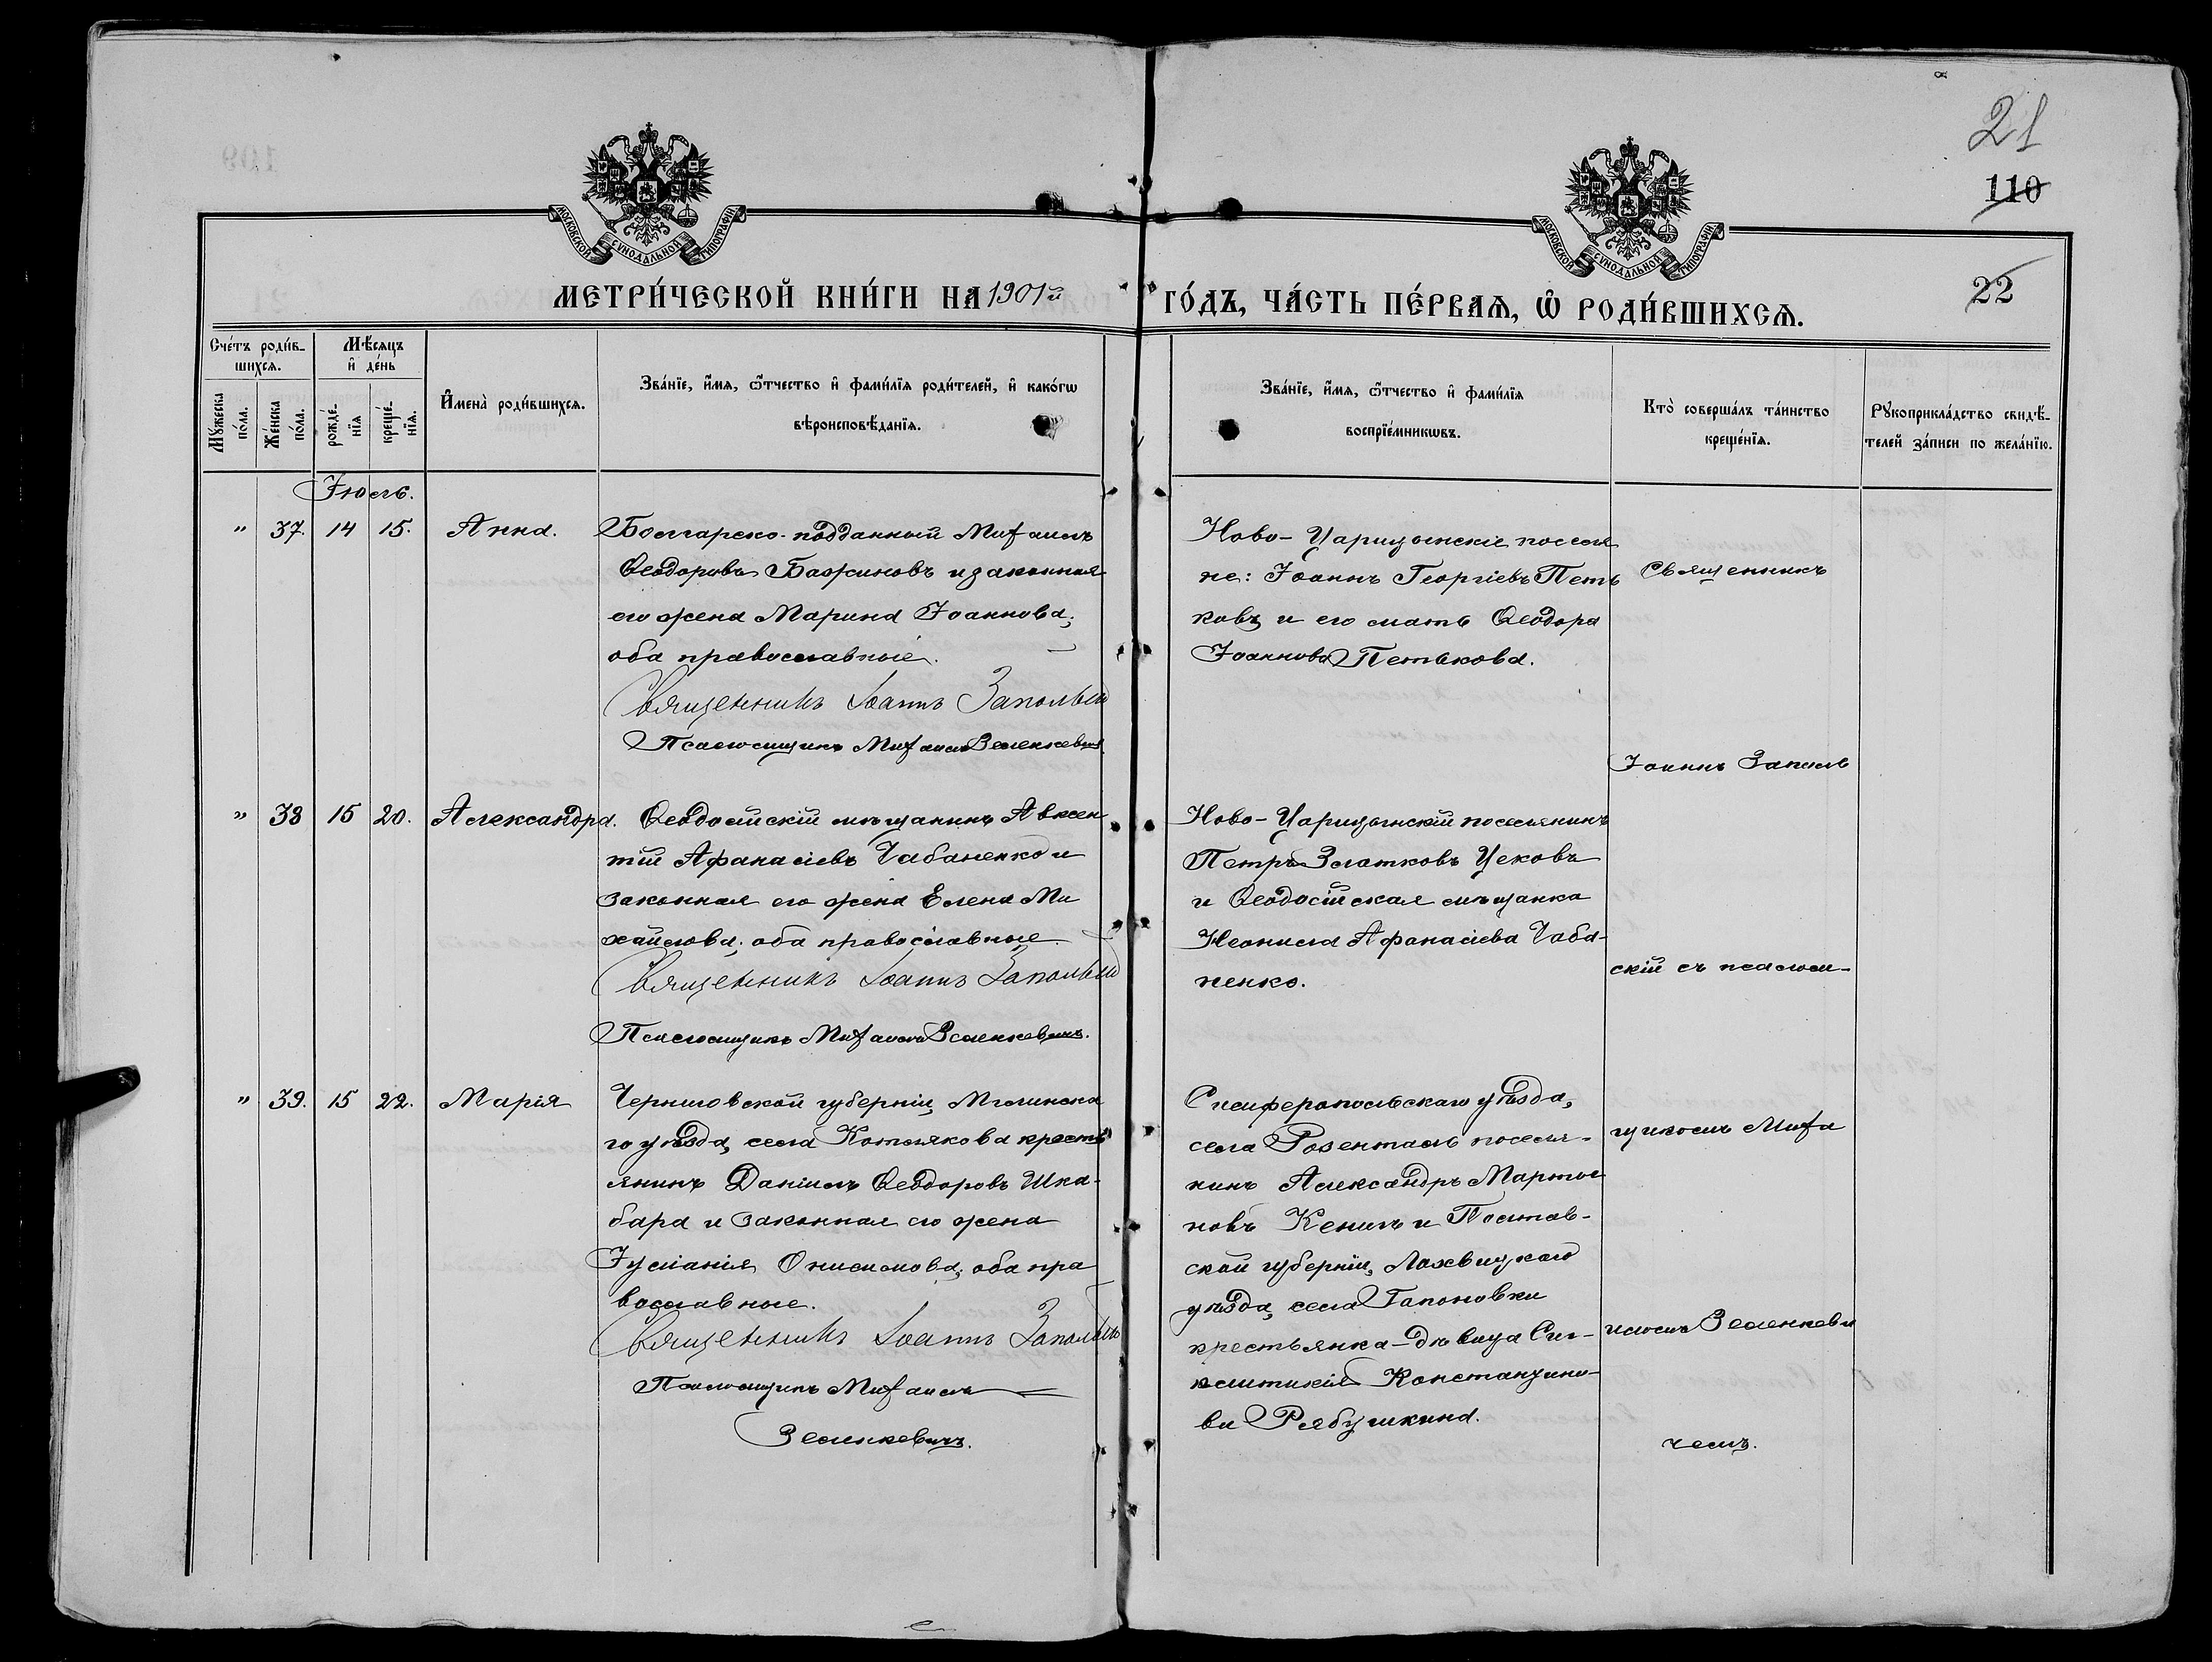 21
110
22
МОСКОВСКОЙ СѴНОДАЛЬНОЙ ТИПОГРАФІИ
МОСКОВСКОЙ СѴНОДАЛЬНОЙ ТИПОГРАФІИ
МЕТРИ́ЧЕСКОЙ КНИ́ГИ НА 1901й ГО́ДЪ, ЧА́СТЬ ПЕ́РВАѦ, Ѡ҆ РОДИ́ВШИХСѦ.
Сче́тъ роди́в-
шихсѧ.
Мꙋжеска по́ла.
Же́нска по́ла.
Мѣ́сяцъ
и҆ де́нь
рожде́-
нїѧ
креще́-
нїѧ.
И҆мена̀ роди́вшихсѧ.
Зва́нїе, и҆́мѧ, ѻ҆́тчество и҆ фами́лїѧ роди́телей, и҆ како́гѡ
вѣроисповѣ́данїѧ.
Зва́нїе, и҆́мѧ, ѻ҆́тчество и҆ фами́лїѧ
воспрїе́мникѡвъ.
Кто̀ соверша́лъ та́инство
креще́нїѧ.
Рꙋкоприкла́дство свидѣ́-
телей за́писи по жела́нїю.
Іюль.
" 37. 14 15. Анна.
Болгарско-подданный Михаилъ
Ѳеодоровъ Бажиновъ и законная
его жена Марина Іоаннова;
оба православные.
Священникъ Іоаннъ Запольскій
Псаломщикъ Михаилъ Зеленкевичъ
Ново-Царицынскіе поселя
не: Іоаннъ Георгіевъ Петь
ковъ и его мать Ѳеодора
Іоаннова Петькова.
" 38 15 20. Александра.
Ѳеодосійскій мѣщанинъ Авксен
тій Афанасіевъ Чабаненко и
законная его жена Елена Ми
хайлова; оба православные.
Священникъ Іоаннъ Запольскій
Псаломщикъ Михаилъ Зеленкевичъ.
Ново-Царицынскій поселянинъ
Петръ Златковъ Цековъ
и Ѳеодосійская мѣщанка
Неонила Афанасіева Чаба-
ненко.
" 39. 15 22. Марія
Черниговской губерніи, Мглинска
го уѣзда, села Котлякова кресть
янинъ Даніилъ Ѳеодоровъ Шка-
бара и законная его жена
Іуліанія Онисимова; оба пра
вославные.
Священникъ Іоаннъ Запольскій
Псаломщикъ Михаилъ
Зеленкевичъ.
Симферопольскаго уѣзда,
села Розенталь поселя-
нинъ Александръ Марты
новъ Кенигъ и Полтав-
ской губерніи, Лохвицкаго
уѣзда, села Гапоновки
крестьянка-дѣвица Син-
клитикія Константино-
ва Рябушкина.
Священникъ
Іоаннъ Заполь
скій съ псалом-
щикомъ Миха
иломъ Зеленкеви
чемъ.